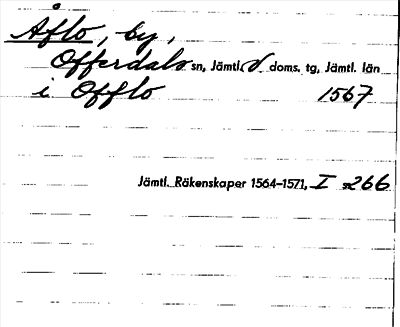 Åflo, by,
Offerdals sn, Jämtl. V doms. tg, Jämtl. län
i Offlo 1567
Jämtl. Räkenskaper 1564-1571, I s 266